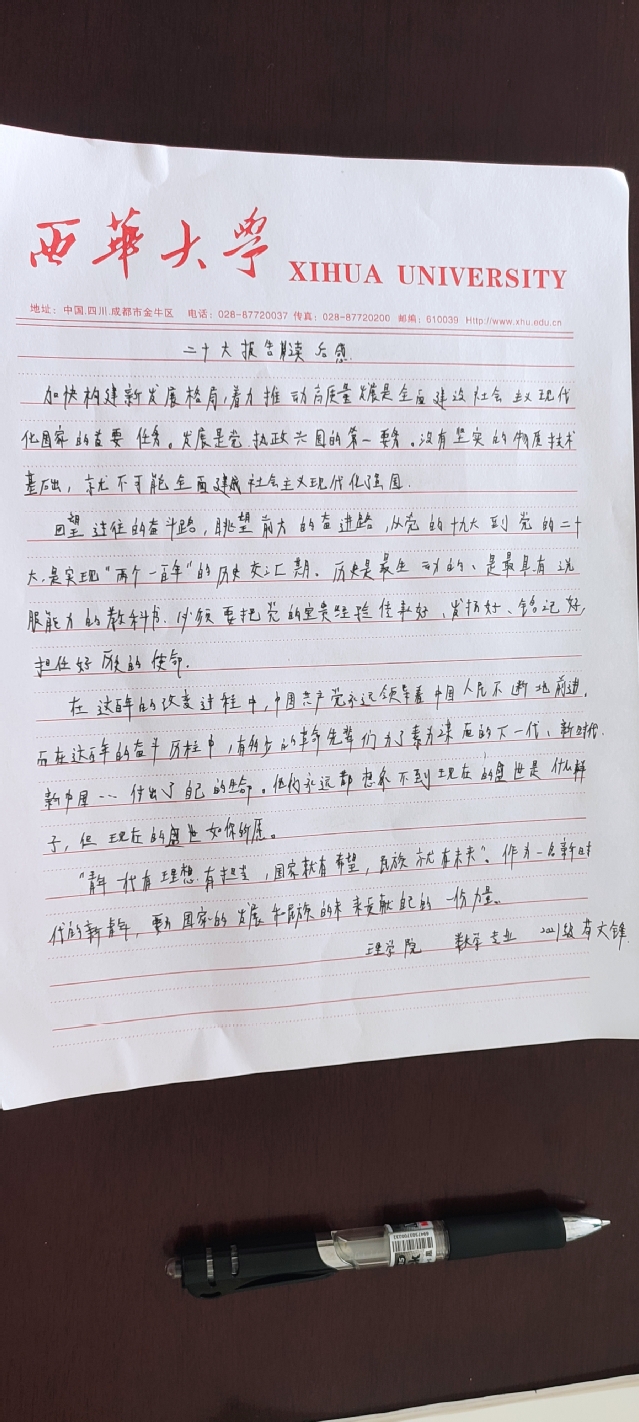 西華大學 XIHUA UNIVERSITY
地址：中国.四川.成都市金牛区 电话：028-87720037 传真：028-87720200 邮编：610039 Http://www.xhu.edu.cn
二十大报告解读后感
加快构建新发展格局,着力推动高质量发展是全面建设社会主义现代
化国家的首要任务。发展是党执政兴国的第一要务。没有坚实的物质技术
基础，就不可能全面建成社会主义现代化强国.
回望过往的奋斗路,眺望前方的奋进路,从党的十九大到党的二十
大,是实现"两个一百年"的历史交汇期。历史是最生动的、是最具有说
服能力的教科书.必须要把党的宝贵经验传承好、发扬好、铭记好,
担任好历史的使命.
在这百年的改变过程中,中国共产党永远领导着中国人民不断地前进.
而在这百年的奋斗历程中,有多少的革命先辈们为了身后的下一代、新时代.
新中国…付出了自己的生命。他们永远都想象不到现在的盛世是什么样
子,但现在的盛世如你所愿。
"青年一代有理想有担当,国家就有希望,民族就有未来"。作为一名新时
代的新青年,要为国家的发展和民族的未来贡献自己的一份力量。
理学院 数学专业 2021级 文锋